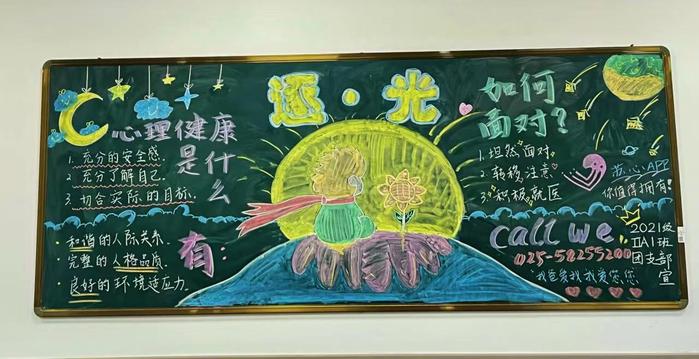 逐·光
心理健康
是什么
1. 充分的安全感.
2. 充分了解自己.
3. 切合实际的目标.
有:
· 和谐的人际关系.
完整的人格品质.
· 良好的环境适应力.
如何
面对?
1. 坦然面对.
2. 转移注意
3. 积极就医
苏心APP
你值得拥有!
call we
025-58255200
我爸爱我我爱您您
2021级
团支部
宣